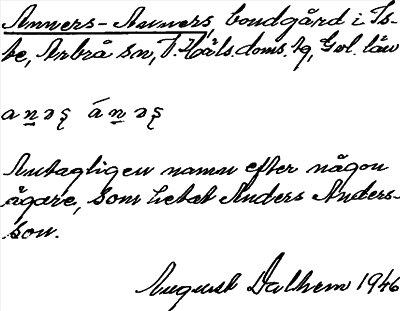 Anners-Anners, bondgård i Is-
te, Arbrå sn, V. Häls. doms. tg, Gvl. län
anəʂ ánəʂ
Antagligen namn efter någon
ägare, som hetat Anders Anders-
son.
August Dalhem 1946